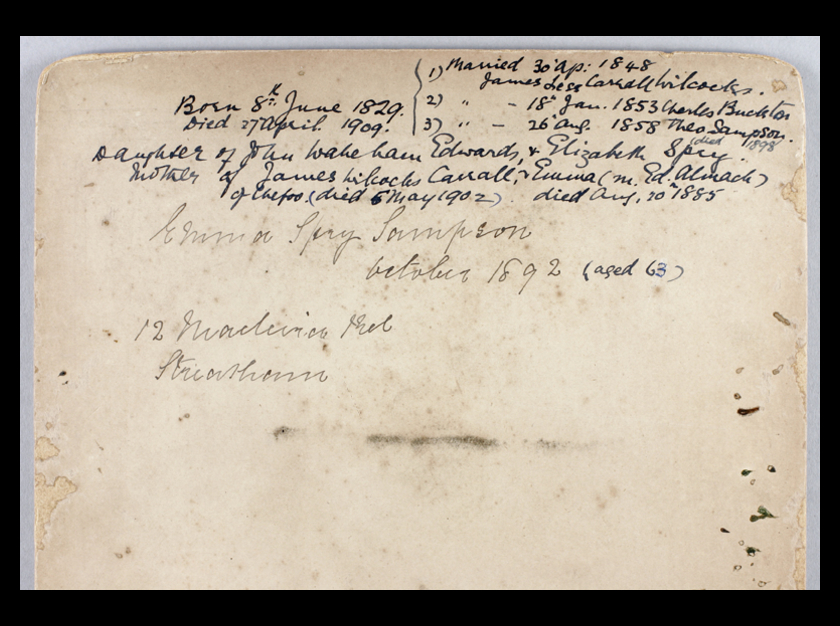 1) Married 30 Ap: 1848
James Less Carrall Wilcocks.
Born 8th June 1829.
2) " - 18 Jan. 1853 Charles Buckton
Died 27 April. 1909.
3) " - 26 Aug. 1858 Theo Sampson.
(died 1898
Daughter of John Wakeham Edwards, & Elizabeth Spry.
Mother of James Wilcocks Carrall, & Emma (m. Ed. Almack)
of Chefoo. (died 6 May 1902) died Aug, 20 1885
Emma Spry Sampson
October 1892 (aged 63)
12 Madeira Rd
Streatham